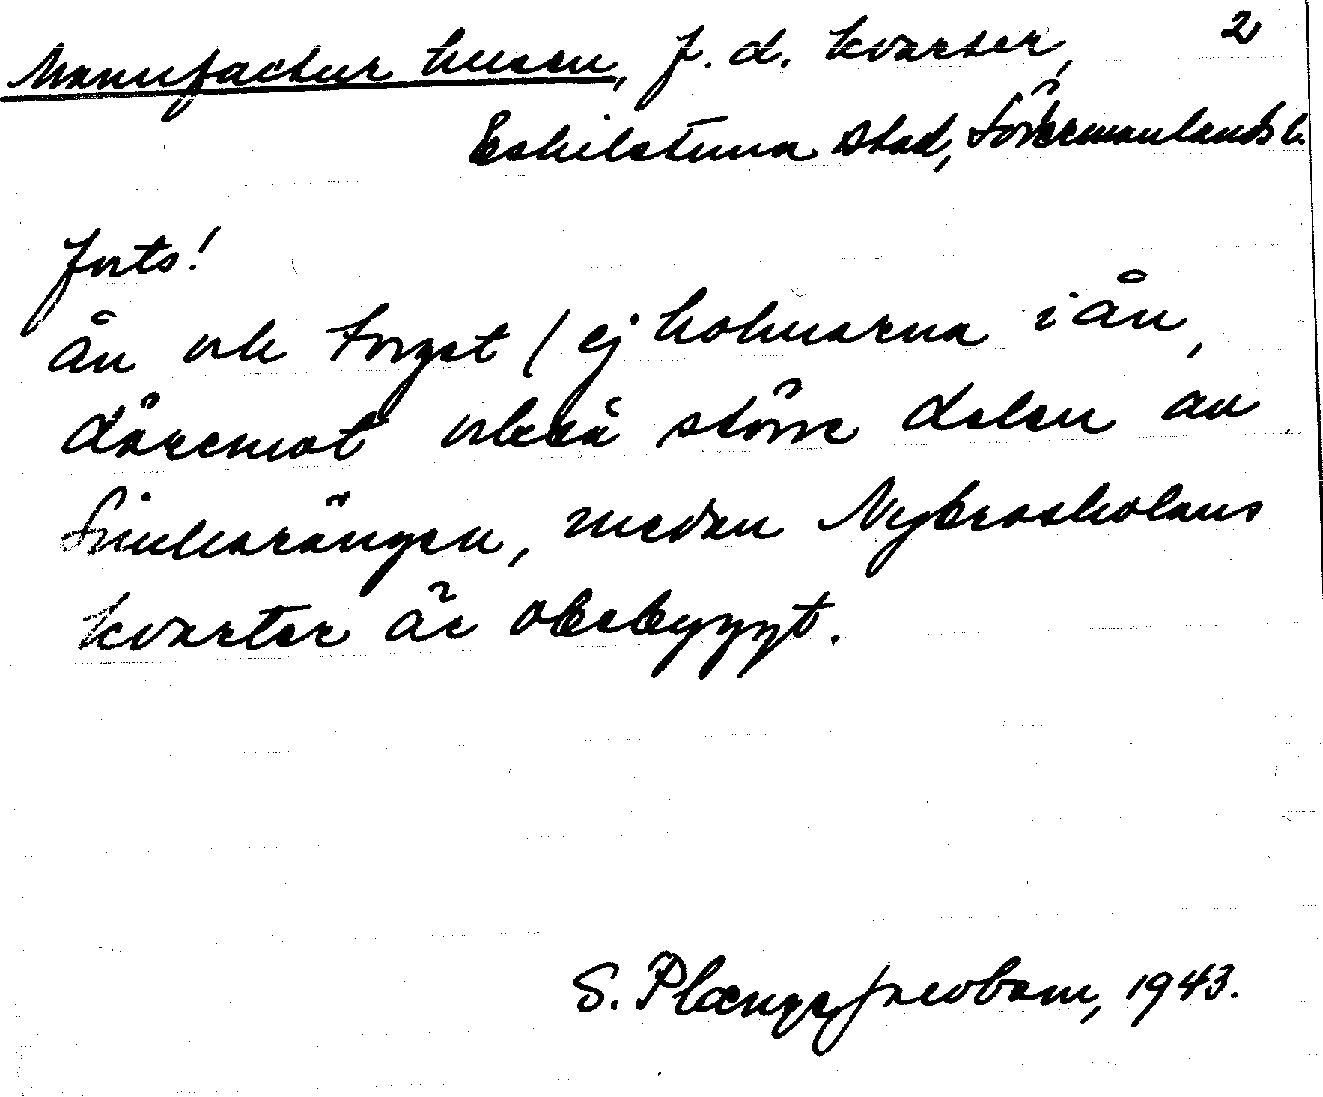 2
Manufactur husen, f. d. kvarter,
Eskilstuna stad, Södermanlands l.
forts!
ån och torget / ej holmarna i ån,
däremot också större delen av
Sinkarängen, medan Nybroskolans
kvarter är obebyggt.
S. Plænge Jacobson, 1943.